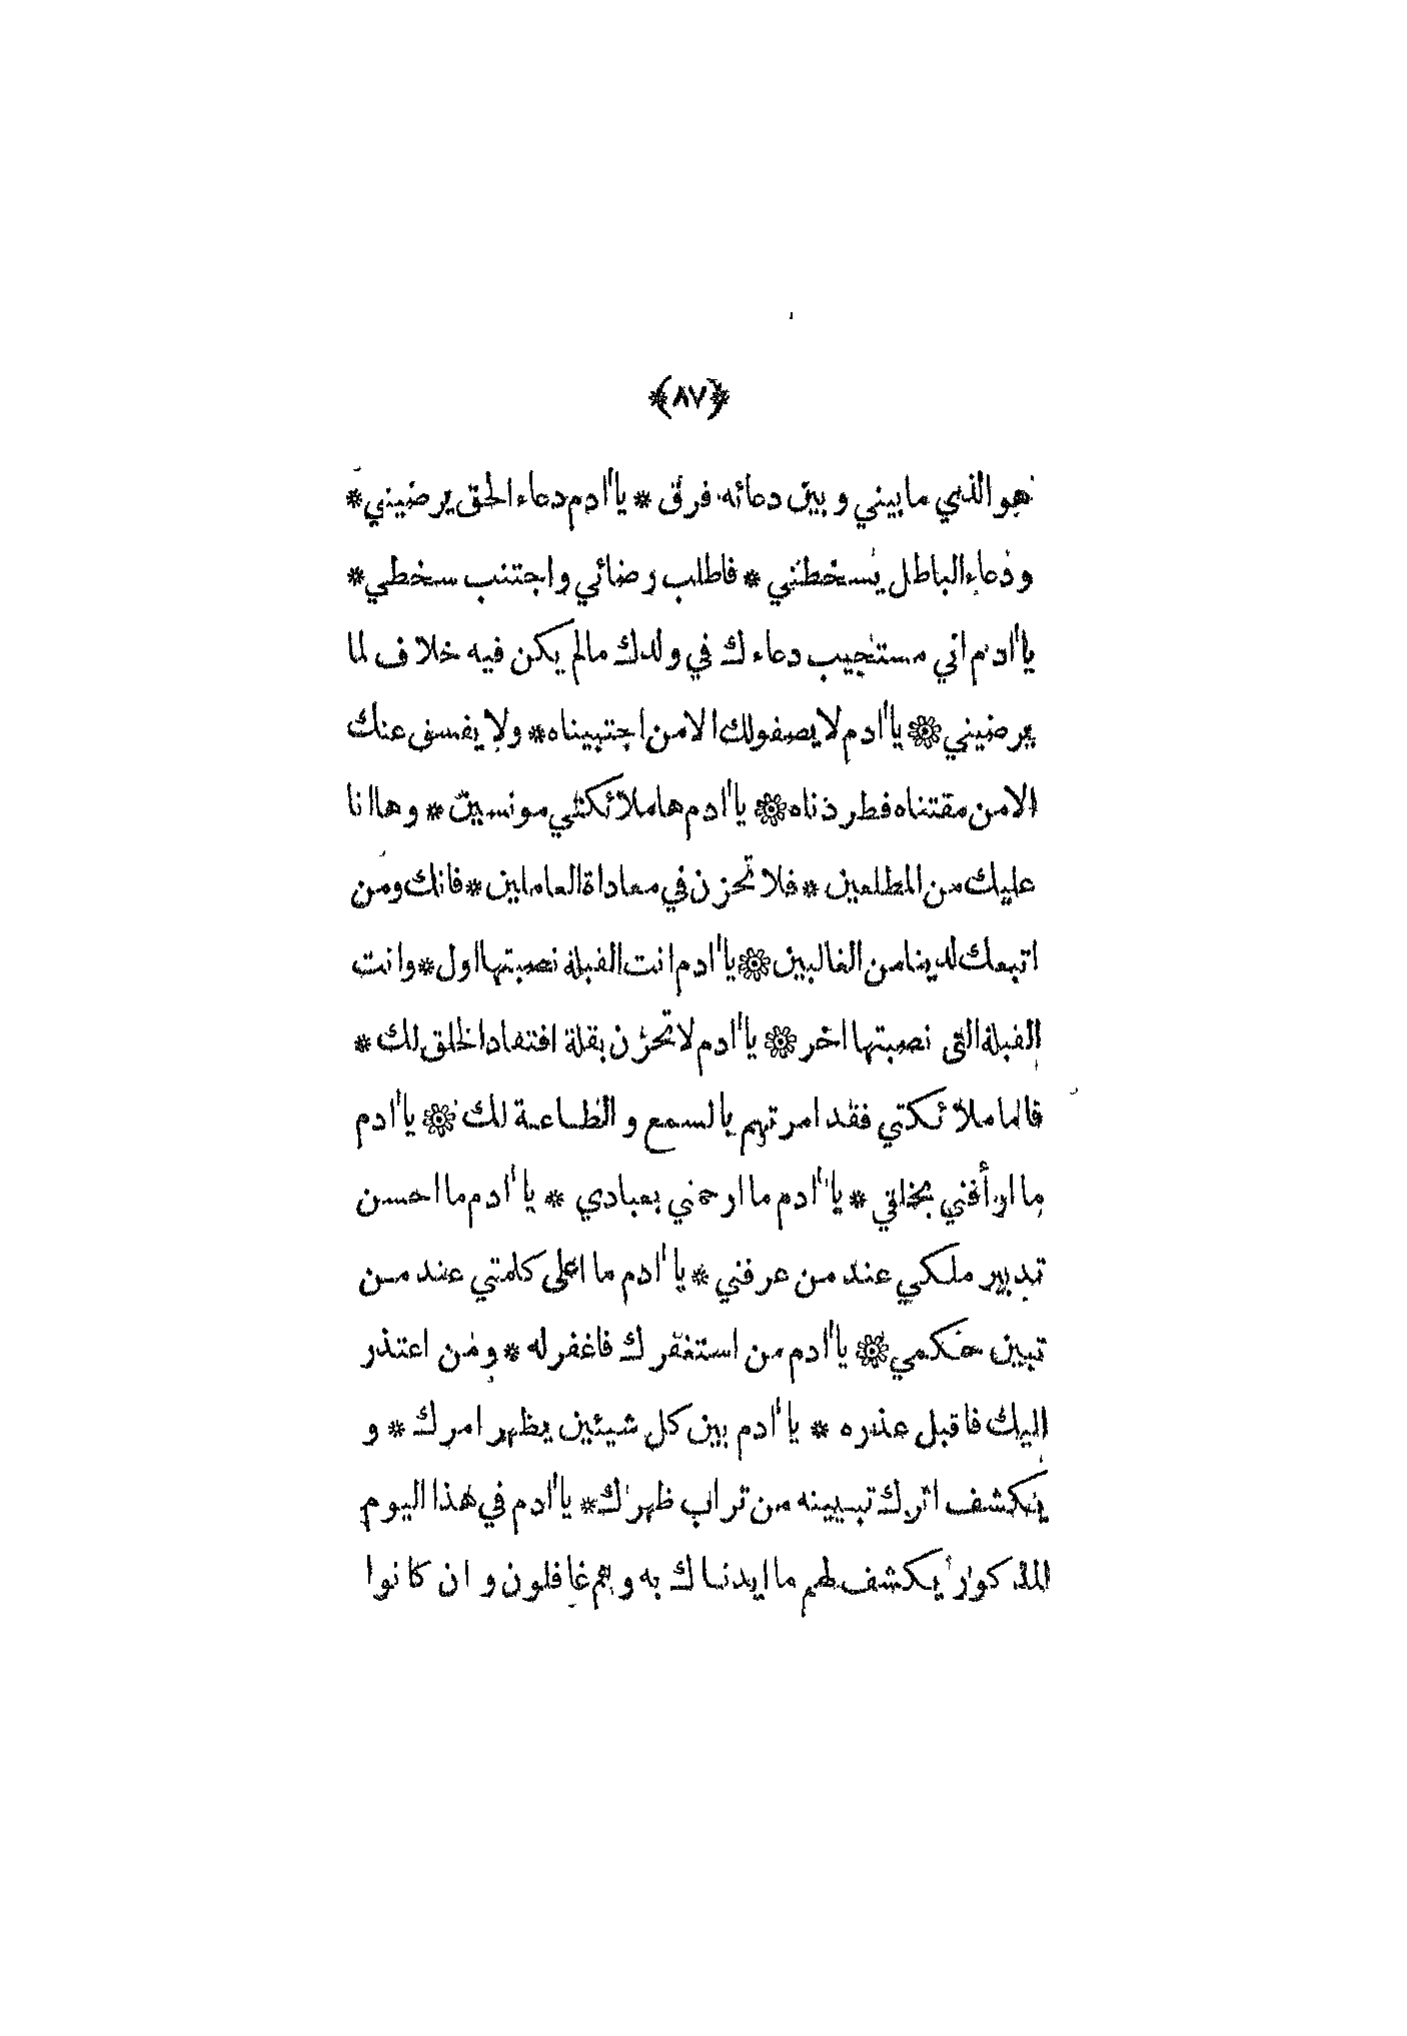 ﴿٨٧﴾
هو الذي ما بيني و بين دعائه فرق * يا ادم دعاء الحق يرضيني *
و دعاء الباطل يسخطني * فاطلب رضائي و اجتنب سخطي *
يا ادم اني مستجيب دعاءك في ولدك ما لم يكن فيه خلاف لما
يرضيني ❁ يا ادم لا يصفو لك الا من اجتبيناه * ولا يفسق عنك
الا من مقتناه فطردناه ❁ يا ادم ها ملائكتي مونسين * وها انا
عليك من المطلعين * فلا تحزن في معاداة العاملين * فانك ومن
اتبعك لدينا من الغالبين ❁ يا ادم انت القبلة نصبتها اول * وانت
القبلة التي نصبتها اخر ❁ يا ادم لا تحزن بقلة افتقاد الخلق لك *
فاما ملائكتي فقد امرتهم بالسمع و الطاعة لك ❁ يا ادم
ما ارأفني بخلقي * يا ادم ما ارحمني بعبادي * يا ادم ما احسن
تدبير ملكي عند من عرفني * يا ادم ما اعلى كلمتي عند من
تبين حكمي ❁ يا ادم من استغفرك فاغفر له * ومن اعتذر
اليك فاقبل عذره * يا ادم بين كل شيئين يظهر امرك * و
ينكشف اثرك تبيينه من تراب ظهرك * يا ادم في هذا اليوم
المذكور يكشف لهم ما ايدناك به و هم غافلون و ان كانوا